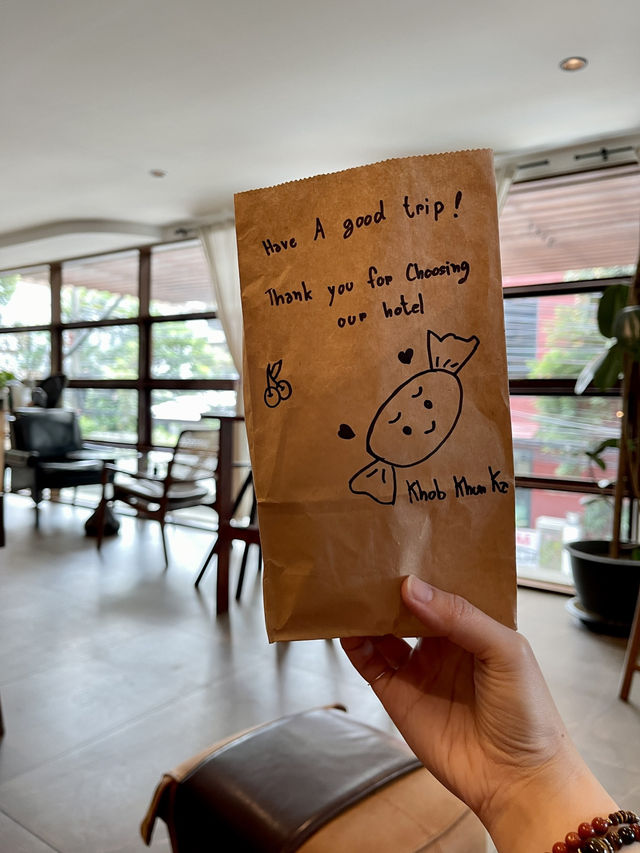 Have A good trip!
Thank you for Choosing
our hotel
Khob Khun Ka